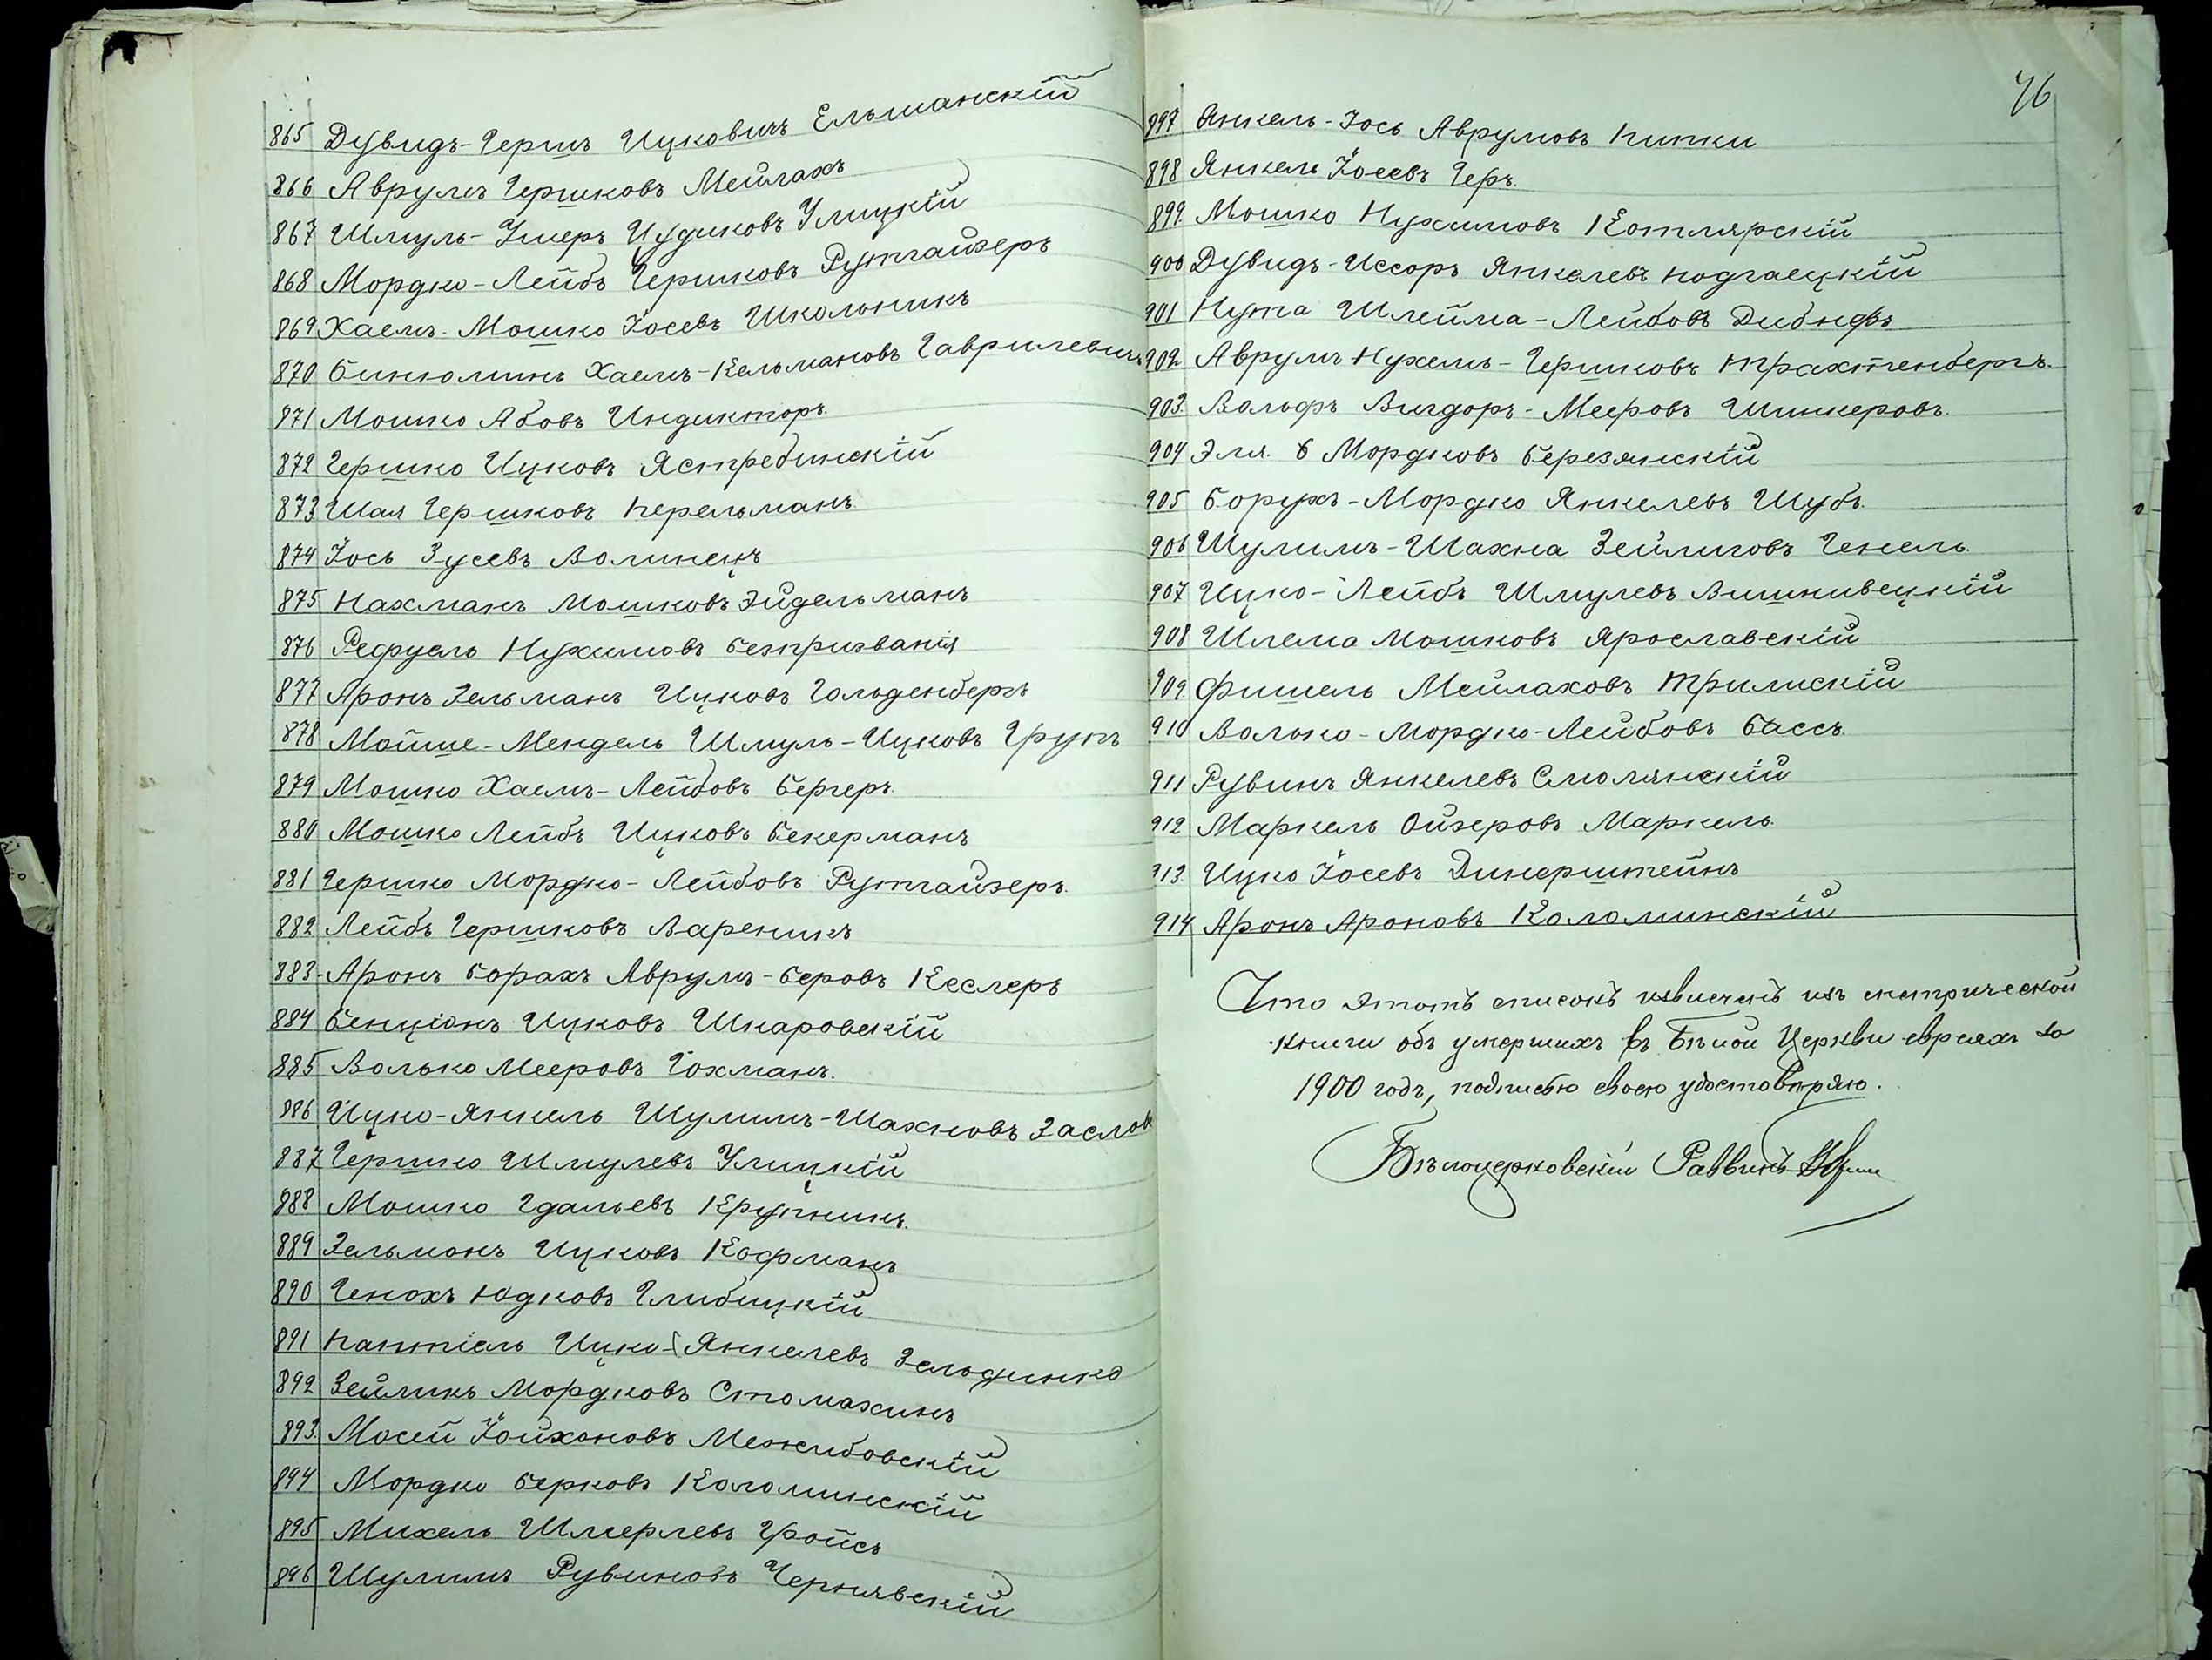 865 Дувидъ-Гершъ Ицковичъ Ельманскій
866 Аврумъ Гершковъ Мейлахъ
867 Шмуль-Умеръ Иудковъ Улицкій
868 Мордко-Лейбъ Гершковъ Рутгайзеръ
869 Хаемъ-Мошко Іосевъ Школьникъ
870 Бинюминъ Хаемъ-Кельмановъ Гаврилевичъ
871 Мошко Абовъ Индикторъ.
872 Гершко Ицковъ Ястребинскій
873 Шая Гершковъ Перельманъ.
874 Іось Зусевъ Волинецъ
875 Нахманъ Мошковъ Эйдельманъ
876 Рефуель Нухимовъ Безпризванія
877 Аронъ Зельманъ Ицковъ Гольденбергъ
878 Мойше-Мендель Шмуль-Ицковъ
879 Мошко Хаемъ-Лейбовъ Бергеръ.
880 Мошко Лейбъ Ицковъ Бекерманъ
881 Гершко Мордко-Лейбовъ Рутгайзеръ.
882 Лейбъ Гершковъ Вареникъ
883 Аронъ Борахъ Аврумъ-Беровъ Кеслеръ
884 Бенціонъ Ицковъ Шкаровскій
885 Волько Мееровъ Гохманъ.
886 Ицко-Янкель Шулимъ-Шахновъ Заслов
887 Гершко Шмулевъ Улицкій
888 Мошко Гдальевъ Крупникъ.
889 Зельманъ Ицковъ Кофманъ
890 Генохъ Юдковъ Глибицкій
891 Ицко-Янкелевъ
892 Зейликъ Мордковъ Стомахинъ
893. Мосей Іойхоновъ Межибовскій
894 Мордко Берковъ Коломинскій
895 Михель Шмерлевъ Гройсъ
896 Шулимъ Рувиновъ Чернявскій
76
897 Янкель-Іось Аврумовъ Ципки
898 Янкель Іосевъ Геръ.
899. Мошко Нухимовъ Котлярскій
900 Дувидъ-Иссоръ Янкелевъ Подгаецкій
901 Нута Шлейма-Лейбовъ
902 Аврумъ Нухемъ-Гершковъ Трахтенбергъ.
903. Вольфъ Вигдоръ-Мееровъ Шинкеровъ.
904 Эля Б Мордковъ Березянскій
905 Борухъ-Мордко Янкелевъ Шубъ.
906 Шулимъ-Шахна Зейлиговъ Генель.
907 Ицко-Лейбъ Шмулевъ Вишнивецкій
908 Шлема Мошковъ Ярославскій
909. Фишель Мейлаховъ Трилискій
910 Волько-Мордко-Лейбовъ Бассъ.
911 Рувинъ Янкелевъ Смолянскій
912 Маркель Ойзеровъ Маркель.
913. Ицко Іосевъ Динерштейнъ
914 Аронъ Ароновъ Коломинскій
Что этотъ списокъ извлеченъ изъ метрической
книги объ умершихъ въ Бѣлой Церкви евреяхъ за
1900 годъ, подписью своею удостовѣряю.
Бѣлоцерковскій Раввинъ